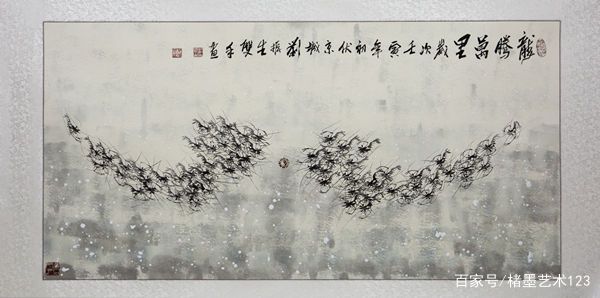 龍騰萬里 歲次壬寅年初伏京城劉振生雙手畫
百家号/楮墨艺术123